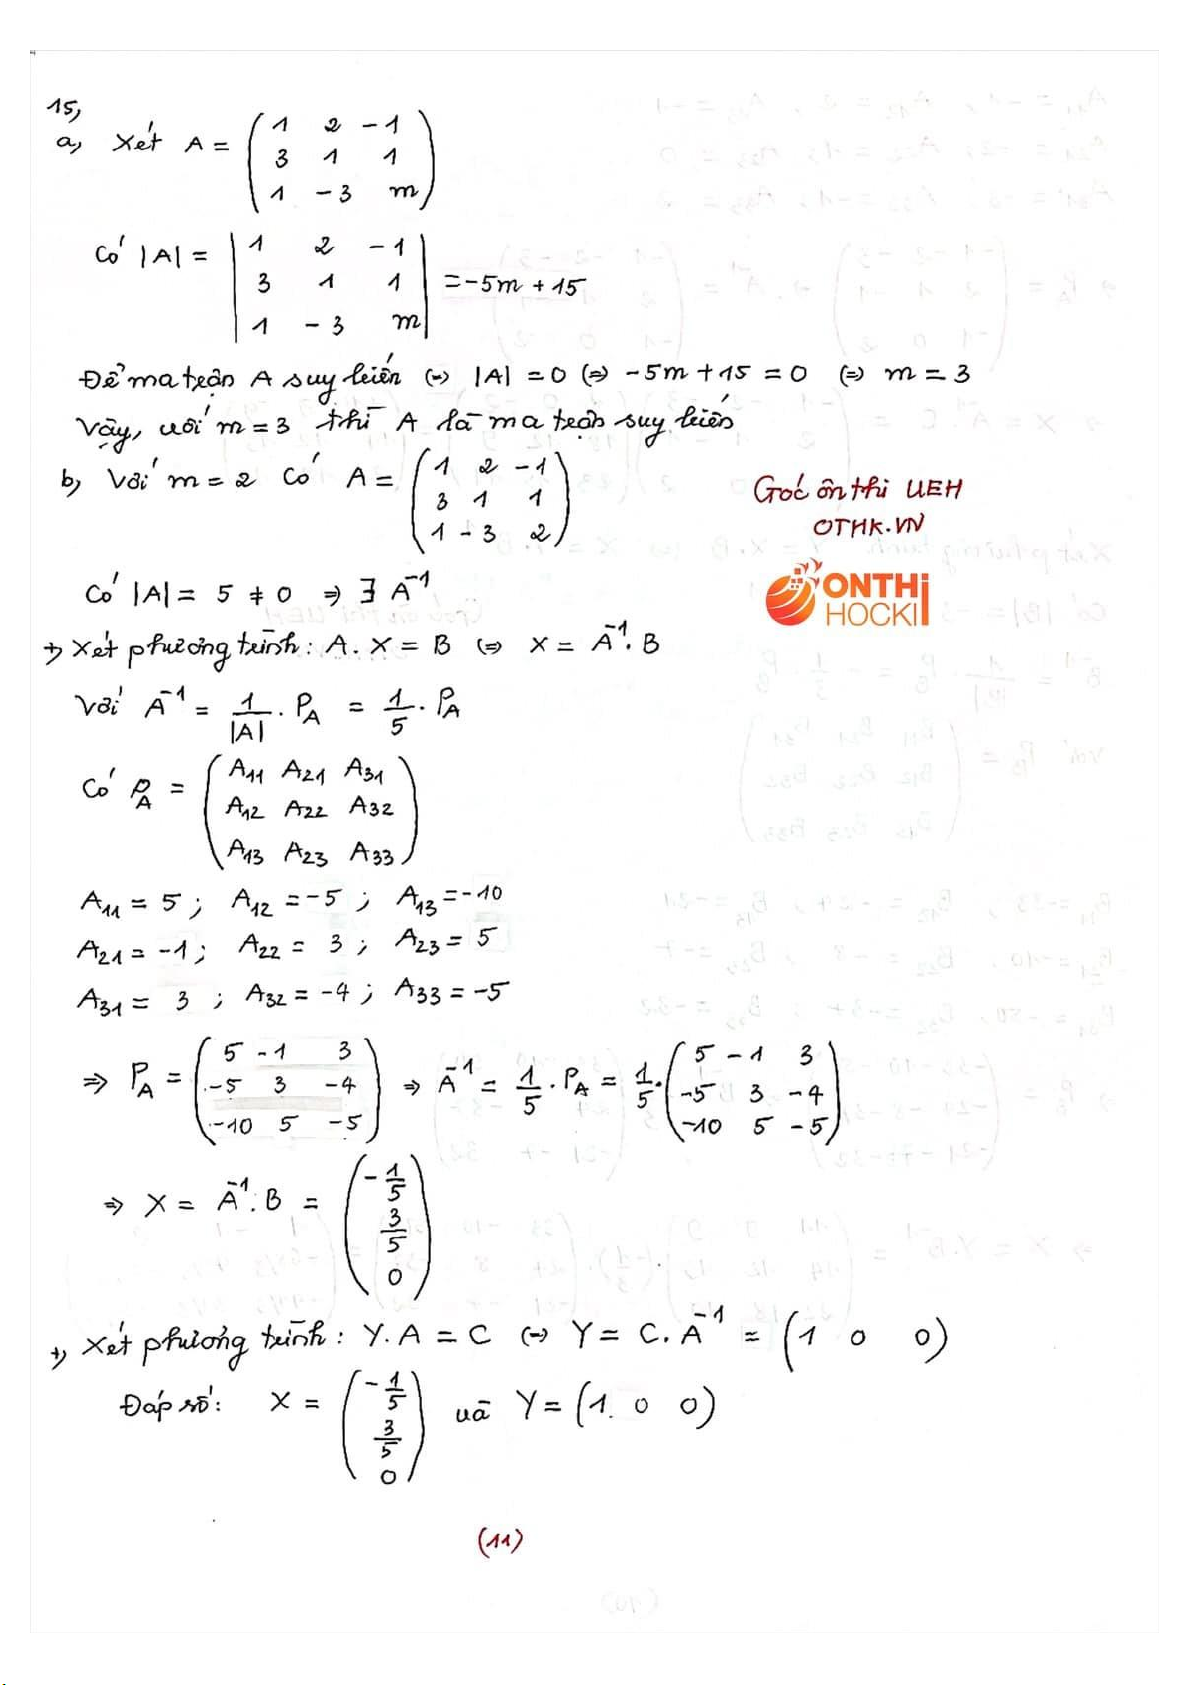 15,
a, Xét A = ( 1 2 -1
3 1 1
1 -3 m )
Có |A| = | 1 2 -1
3 1 1
1 -3 m | = -5m + 15
Để ma trận A suy biến (=) |A| = 0 (=) -5m + 15 = 0 (=) m = 3
Vậy, với m = 3 thì A là ma trận suy biến
b, Với m = 2 Có A = ( 1 2 -1
3 1 1
1 -3 2 )
Góc ôn thi UEH
OTHK.VN
ONTHI
HOCKI
Có |A| = 5 ≠ 0 => ∃ A⁻¹
+, Xét phương trình: A. X = B (=) X = A⁻¹. B
Với A⁻¹ = 1/|A| . P_A = 1/5 . P_A
Có P_A = ( A11 A21 A31
A12 A22 A32
A13 A23 A33 )
A11 = 5 ; A12 = -5 ; A13 = -10
A21 = -1 ; A22 = 3 ; A23 = 5
A31 = 3 ; A32 = -4 ; A33 = -5
=> P_A = ( 5 -1 3
-5 3 -4
-10 5 -5 ) => A⁻¹ = 1/5 . P_A = 1/5 . ( 5 -1 3
-5 3 -4
-10 5 -5 )
=> X = A⁻¹. B = ( -1/5
3/5
0 )
+, Xét phương trình: Y. A = C (=) Y = C. A⁻¹ = ( 1 0 0 )
Đáp số: X = ( -1/5
3/5
0 ) và Y = ( 1 0 0 )
(11)